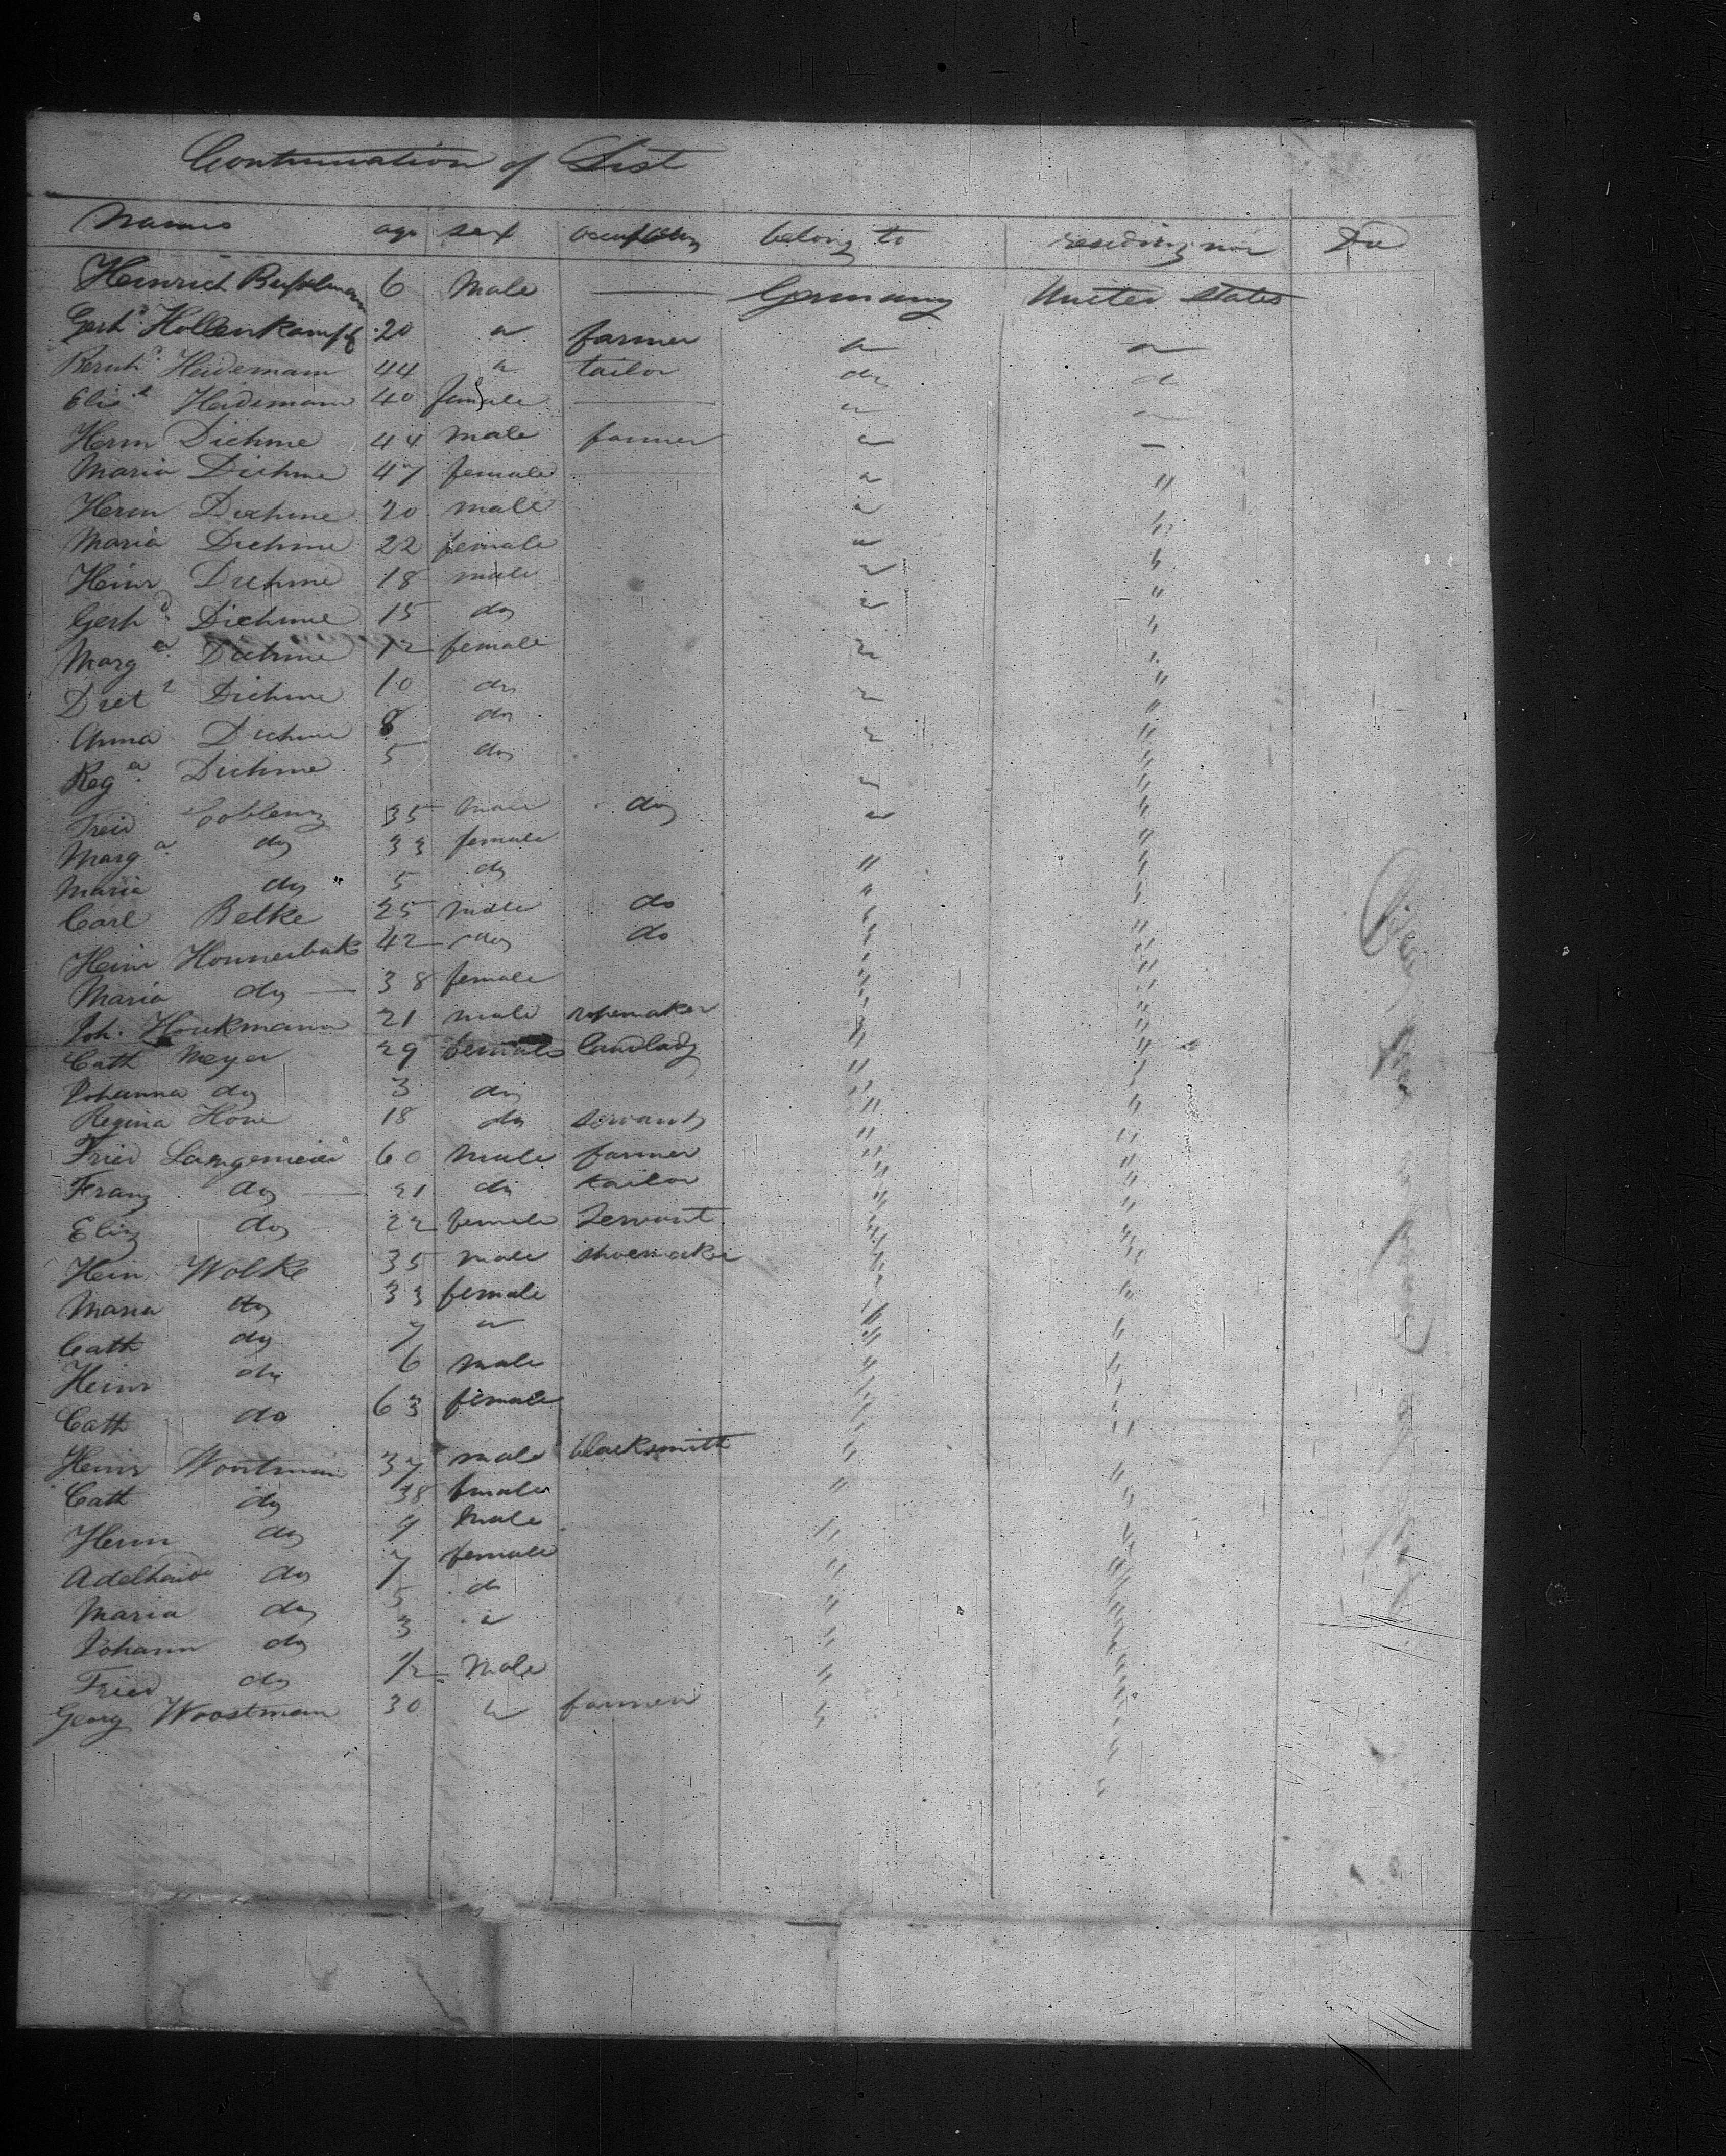 Continuation of List
Names age sex occupation belong to residing now Die
Heinrich 6 Male — Germany United States
Gerhd. Hollenkampf 20 " farmer " "
Bernhd. Heidemann 44 " tailor do do
Elist Heidemann 40 female — " "
Herm Diehme 44 male farmer " —
Maria Diehme 47 female " "
Herm Diehme 20 male " "
Maria Diehme 22 female " "
Heinr Diehme 18 male " "
Gerhd. Diehme 15 do " "
Marga. Diehme 12 female " "
Diehme 10 do " "
Anna Diehme 8 do " "
Rega. Diehme 5 do " "
Fried Coblenz 35 Male do " "
Marga. do 33 female " "
Maria do 5 do " "
Carl Belke 25 Male do " "
Heinr 42 do do " "
Maria do — 38 female " "
Joh. Houkmann 21 male ropemaker " "
Cath Meyer 29 female landlady " "
Johanna do 3 do " "
Regina Hone 18 do servant " "
Fried Langemeier 60 Male farmer " "
Franz do — 21 do tailor " "
Eliz do 22 female Servant " "
Hein Wolke 35 male shoemaker " "
Maria do 33 female " "
Cath do 7 " " "
Heinr do 6 male " "
Cath do 63 female " "
Heinr Woostman 37 male blacksmith " "
Cath do 38 female " "
Herm do 9 Male " "
Adelheid do 7 female " "
Maria do 5 do " "
Johann do 3 " " "
Fried do 1/2 Male " "
Georg Woostman 30 " farmer " "